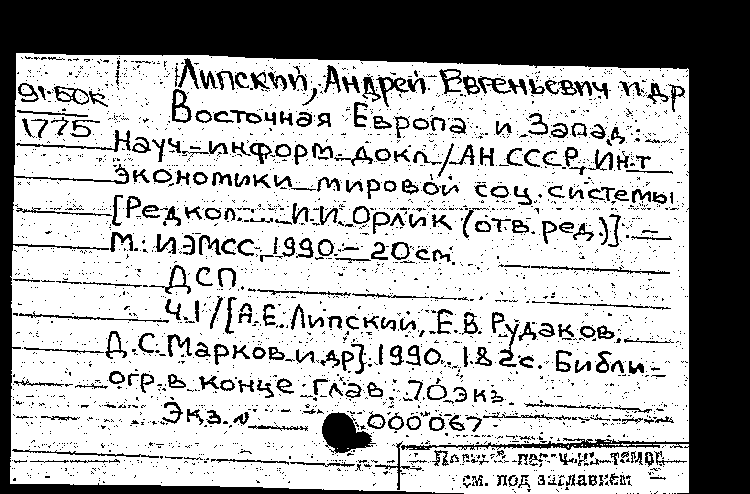 Липский, Андрей Евгеньевич и др
91-5ОК
1775
Восточная Европа и Запад:
Науч.-информ. докл./АН СССР, Ин-т
экономики мировой соц. системы
[Редкол.: ... И.И. Орлик (отв. ред.)] -
М.: ИЭМСС, 1990. - 20 см.
ДСП.
Ч.1/[А.Е. Липский, Е.В. Рудаков,
Д.С. Марков и др]. 1990. 182 с. Библи-
огр. в конце глав. 70 экз.
Экз. N 000067.
Полный перечень томов
см. под заглавием